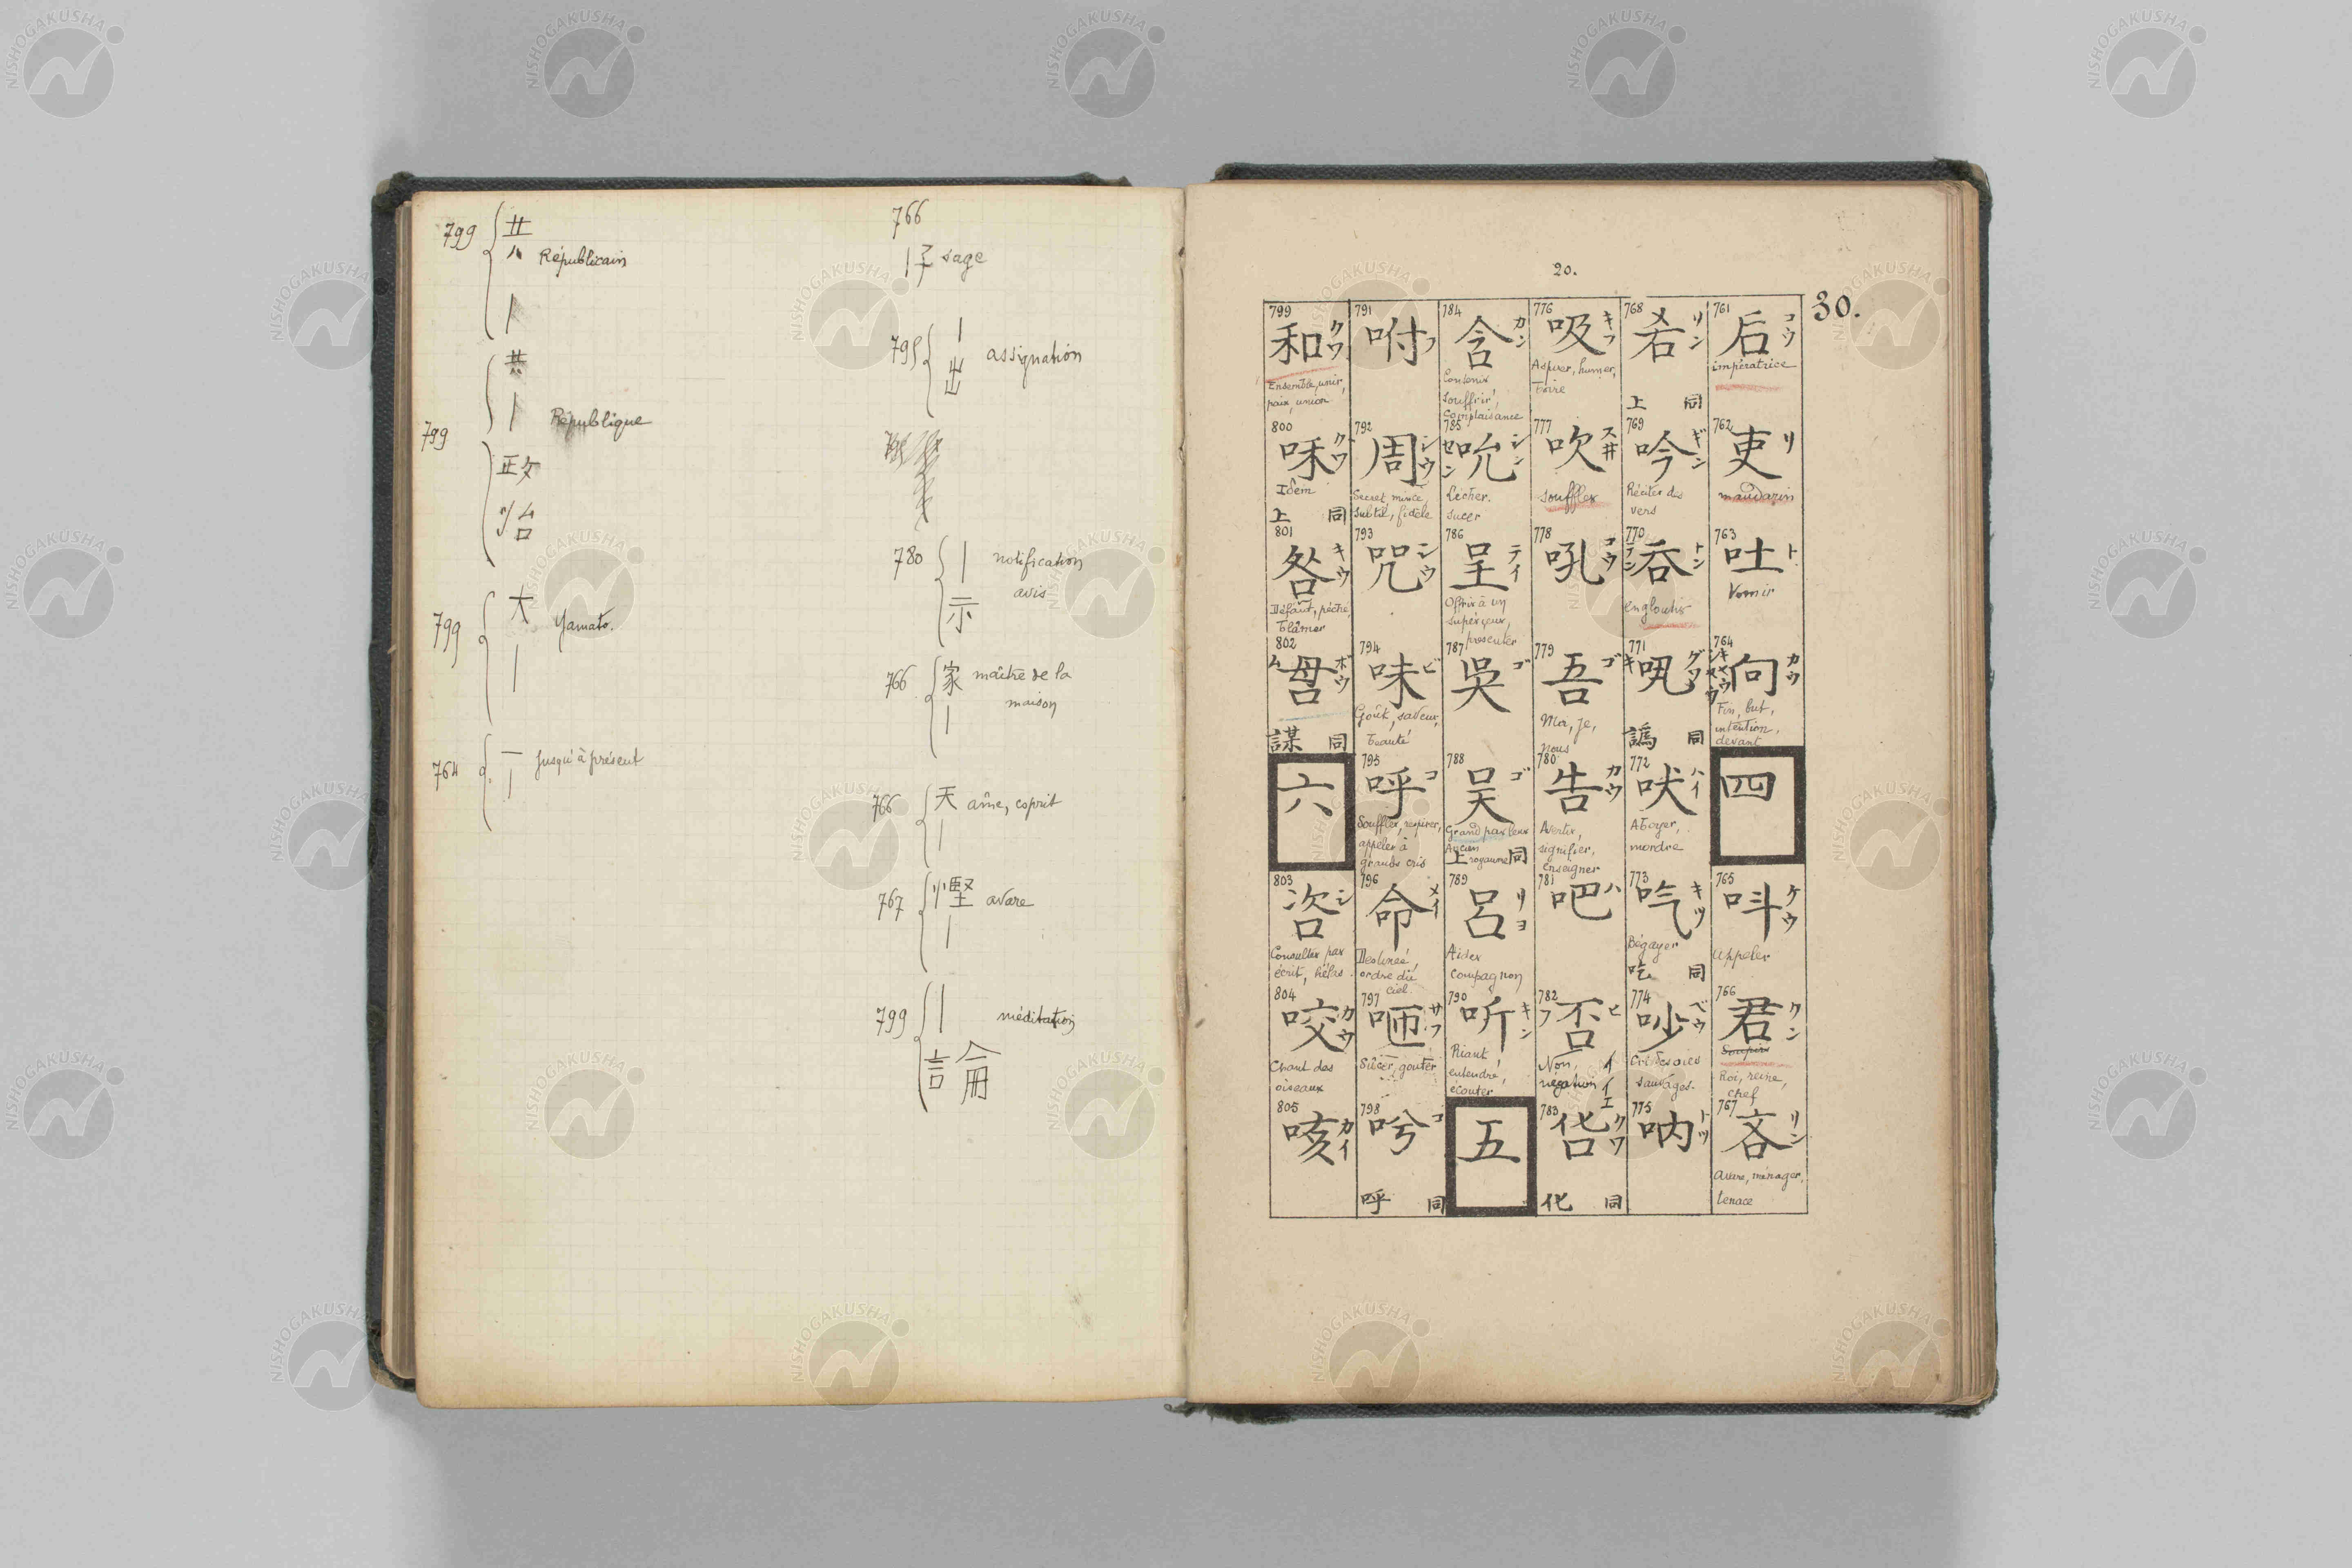 799 共
八 Républicain
｜
共
｜ République
799
政
治
799 大 Yamato.
｜
764 一 jusqu'à présent
｜
766
｜子 sage
795 ｜ assignation
出
780 ｜ notification
avis
示
766 家 maître de la
maison
｜
766 天 âme, esprit
｜
767 慳 avare
｜
799 ｜ méditation
論
20.
30.
761 后 コウ
impératrice
762 吏 リ
mandarin
763 吐 ト
Vomir
764 向 カウ キヤウ
Fin, but,
intention,
devant
四
765 呌 ケウ
appeler
766 君 クン
Roi, reine,
chef
767 吝 リン
Avare, ménager,
tenace
768 リン
上 同
769 吟 ギン
Réciter des
vers
770 呑 トン テン
engloutir
771 吪 グワ キ
譌 同
772 吠 ハイ
Aboyer,
mordre
773 吃 キツ
Bégayer
吃 同
774 吵 ベウ
Cri des oies
sauvages.
775 吶 トツ
776 吸 キフ
Aspirer, humer,
boire
777 吹 スヰ
souffler
778 吼 コウ
779 吾 ゴ
Moi, je,
nous
780 告 カウ
Avertir,
signifier,
enseigner
781 吧 ハ
782 否 ヒ フ
Non, イイエ
negation
783 吪 クワ
化 同
784 含 カン
Contenir,
souffrir,
Complaisance
785 吮 シン セン
Lécher.
sucer
786 呈 テイ
Offrir à un
supérieur,
présenter
787 吳 ゴ
788 吴 ゴ
Grand parleur
Ancien
royaume
上 同
789 呂 リヨ
Aider
compagnon
790 听 キン
Riant
entendre,
écouter
五
791 咐 フ
792 周 シウ
Secret, mince,
subtil, fidèle
793 咒 シウ
794 味 ビ
Goût, saveur,
beauté
795 呼 コ
Souffler, respirer,
appeler à
grands cris
796 命 メイ
Destinée,
ordre du
ciel.
797 咂 サフ
Sucer, gouter
798 呍 コ
呼 同
799 和 クワ
Ensemble, unir,
paix, union
800 咊 クワ
Idem
上 同
801 咎 キウ
Défaut, péché,
blâmer
802 ボウ ム
謀 同
六
803 咨 シ
Consulter par
écrit, hélas
804 咬 カウ
Chant des
oiseaux
805 咳 カイ